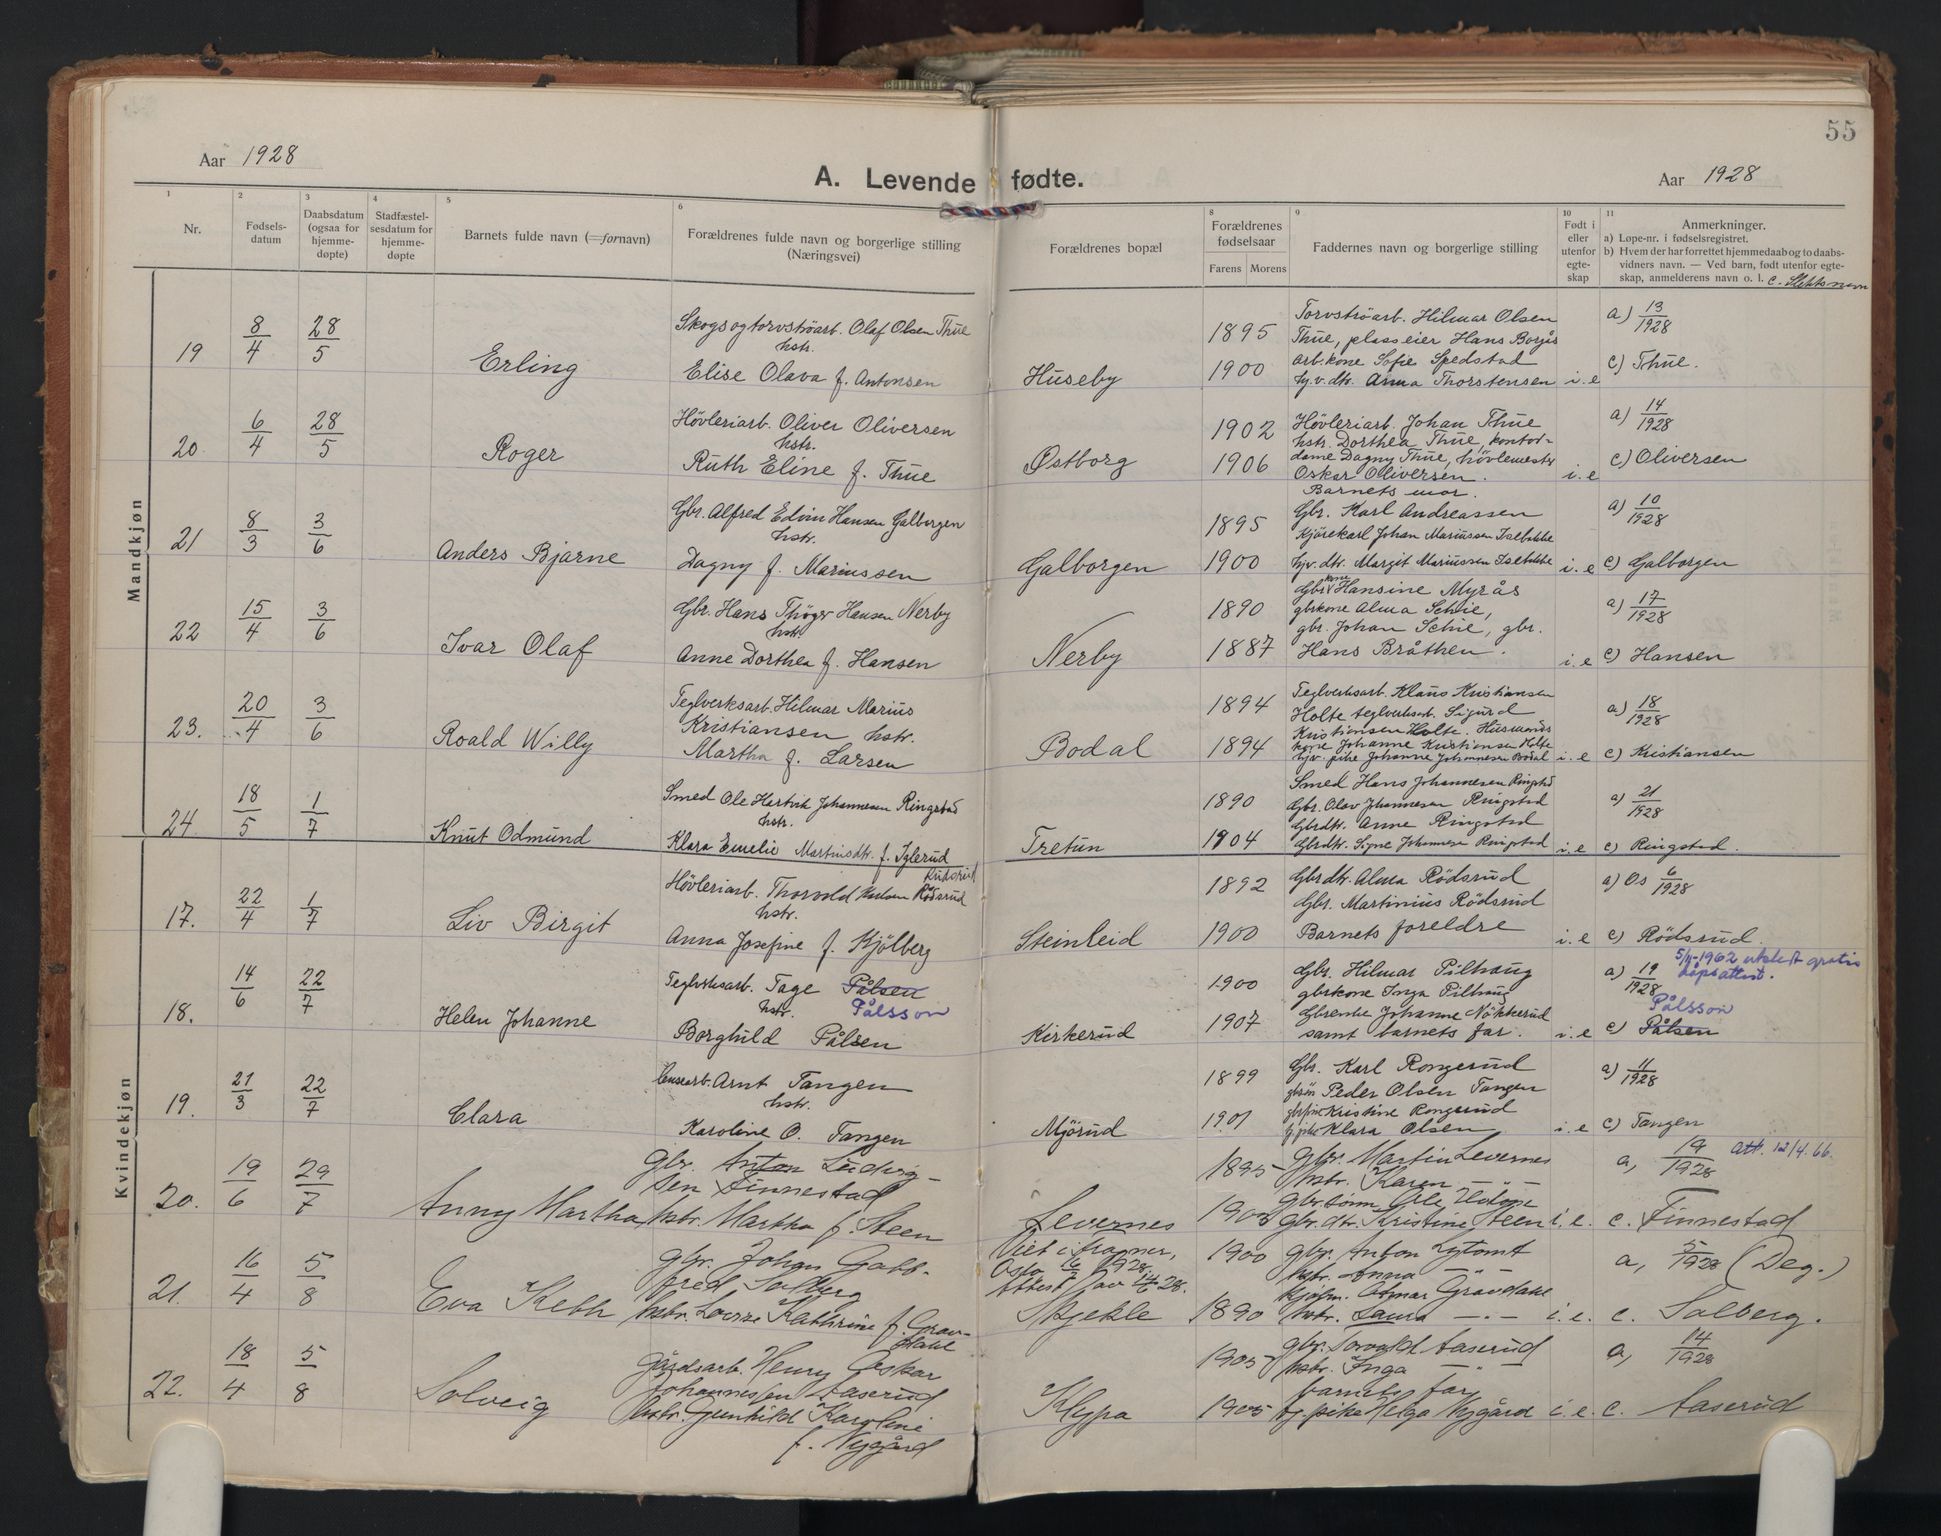 55
Aar 1928
A. Levende fødte.
Aar 1928
1 2 3 4 5 6 8 9 10 11
Nr.
Fødsels-
datum
Daabsdatum
(ogsaa for
hjemme-
døpte)
Stadfæstel-
sesdatum for
hjemme-
døpte
Barnets fulde navn (=fornavn)
Forældrenes fulde navn og borgerlige stilling
(Næringsvei)
Forældrenes bopæl
Forældrenes
fødselsaar
Farens Morens
Faddernes navn og borgerlige stilling
Født i
eller
utenfor
egte-
skap
Anmerkninger.
a) Løpe-nr. i fødselsregistret.
b) Hvem der har forrettet hjemmedaab og to daabs-
vidners navn. — Ved barn, født utenfor egte-
skap, anmelderens navn o. l. c. Slektsnavn
Mandkjøn
19 8/4 28/5 Erling
Skogs og torvströarb. Olaf Olsen Thue
hstr.
Elise Olava f. Antonsen
Huseby
1895
1900
Torvströarb. Hilmar Olsen
Thue, plasseier Hans Borgås
arb.kone Sofie Spedstad
hj.v.dtr. Anna Thorstensen
i.e
a) 13/1928
c) Thue.
20 6/4 28/5 Roger
Hövleriarb. Oliver Oliversen
hstr.
Ruth Eline f. Thue
Østborg
1902
1906
Hövleriarb. Johan Thue
hstr. Dorthea Thue, kontor-
dame Dagny Thue, hövlemestr
Oskar Oliversen.
Barnets mor.
i.e
a) 14/1928
c) Oliversen
21 8/3 3/6 Anders Bjarne
Gbr. Alfred Edvin Hansen Galborgen
hstr.
Dagny f. Mariussen
Galborgen
1895
1900
Gbr. Karl Andreassen
Kjörekarl Johan Mariussen Isebakke
hjv. dtr. Margit Mariussen Isebakke
i.e
a) 10/1928
c) Galborgen
22 15/4 3/6 Ivar Olaf
Gbr. Hans Thöger Hansen Nerby
hstr.
Anne Dorthea f. Hansen
Nerby
1890
1887
Gbr kone Hansine Myrås
gbrkone Alma Schie,
gbr. Johan Schie, gbr.
Hans Bråthen.
i.e
a) 17/1928
c) Hansen
23. 20/4 3/6 Roald Willy
Teglverksarb. Hilmar Marius
Kristiansen hstr.
Martha f. Larsen
Bodal
1894
1894
Teglverksarb. Klaus Kristiansen
Holte teglverksarb. Sigurd
Kristiansen Holte. Husmands
kone Johanne Kristiansen Holte
hjv. pike Johanne Johannesen Bodal
i.e
a) 18/1928
c) Kristiansen
24. 18/5 1/7 Knut Odmund
Smed Ole Hartvik Johannesen Ringstad
hstr.
Klara Emelie Martinsdtr. f. Iglerud
Tretun
1890
1904
Smed Hans Johannesen Ringstad
Gbr. Olav Johannesen Ringstad
Gbrdtr. Anne Ringstad
Gbrdtr. Signe Johannesen Ringstad
i.e
a) 21/1928
c) Ringstad.
Kvindekjøn
17. 22/4 1/7 Liv Birgit
Hövleriarb. Thorvald Rödsrud
hstr.
Anna Josefine f. Kjölberg
Steinleid
1892
1900
Gbrdtr. Alma Rödsrud
Gbr. Martinius Rödsrud
Barnets foreldre
i.e
a) Os 6/1928
c) Rödsrud.
18. 14/6 22/7 Helen Johanne
Teglverksarb. Tage Pålsen
hstr. Pålsson
Borghild Pålsen
Kirkerud
1900
1907
Gbr. Hilmar Pilhaug
gbrkone Inga Pilhaug
Gbrenke Johanne Nökkerud
samt barnets far.
i.e
a) 19/1928 5/4-1962 utstedt gratis
dåpsattest.
Pålsson
c) Pålsen
19. 21/3 22/7 Clara
Arnt Tangen
hstr.
Karoline O. Tangen
Mjörud
1899
1901
Gbr. Karl Rongerud
gbrsön Peder Olsen Tangen
gbrpike Kristine Rongerud
hj. pike Klara Olsen
i.e
a) 11/1928
c) Tangen
20. 19/6 29/7 Anny Martha
Gbr. Anton Ludvig-
sen Finnestad
hstr. Martha f. Steen
Levernes
1895
1905
gbr. Martin Levernes
hstr. Karen —"—
gbr.sönn Ole
gbr.dtr. Kristine Steen
i.e.
a, 19/1928 Att. 12/4.66.
c. Finnestad
21. 16/4 5/8 Eva Keth
gbr. Johan Gott-
fred Solberg
hstr. Lovise Kathrine f. Grav-
dahl
Viet i Fragner,
Oslo 6/6 1928.
Attest f. av 14/6 28.
Skjekle
1900
1890
gbr. Anton Lytomt
hstr. Anna —"—
Otmar Gravdahl
hstr. Laura —"—
i.e.
a, 5/1928 (Deg.)
c. Solberg.
22. 18/4 5/8 Solveig
Gårdsarb. Henry Oskar
Johannessen Aaserud
hstr. Gunhild Karoline
f. Nygård
Klypa
1905
1905
gbr. Torvald Aaserud
hstr. Inga —"—
barnets far
hj. pike Helga Nygård
i.e.
a, 14/1928
c. Aaserud